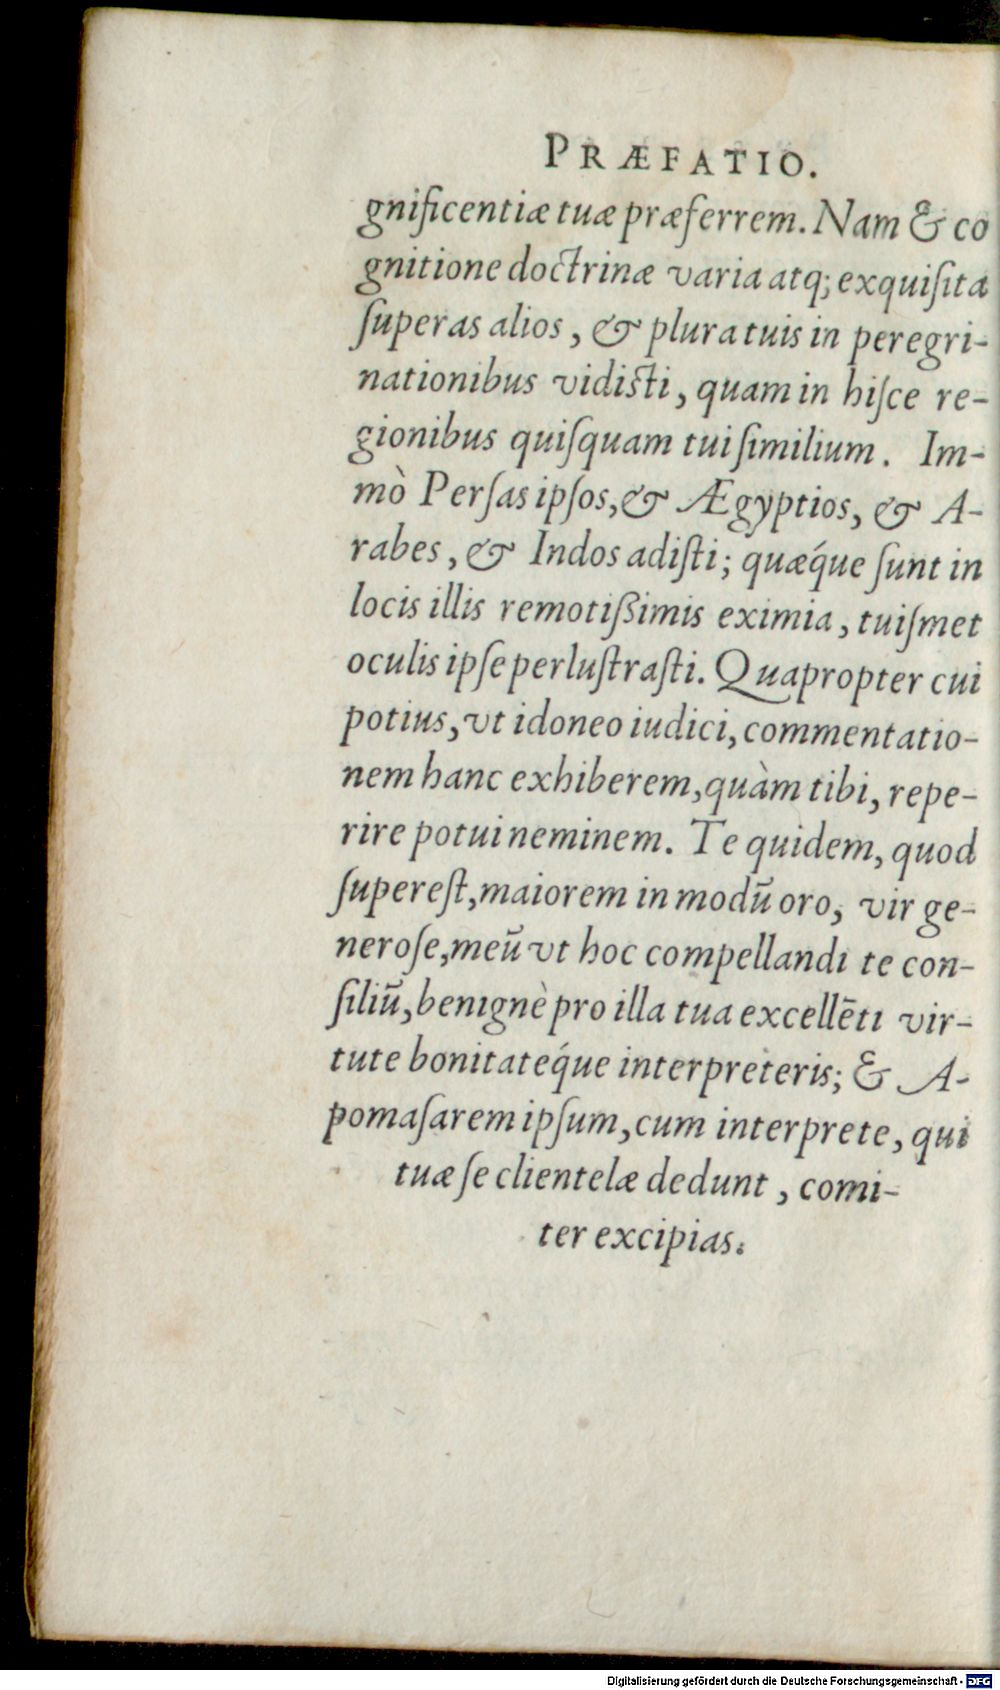 PRÆFATIO.
gnificentiæ tuæ præferrem. Nam & co
gnitione doctrinæ varia atq; exquiſita
ſuperas alios, & plura tuis in peregri-
nationibus vidiſti, quam in hiſce re-
gionibus quiſquam tui ſimilium. Im-
mò Perſas ipſos, & Ægyptios, & A-
rabes, & Indos adiſti; quæq́ue ſunt in
locis illis remotiſsimis eximia, tuiſmet
oculis ipſe perluſtraſti. Quapropter cui
potius, vt idoneo iudici, commentatio-
nem hanc exhiberem, quàm tibi, repe-
rire potui neminem. Te quidem, quod
ſupereſt, maiorem in modũ oro, vir ge-
neroſe, meũ vt hoc compellandi te con-
ſiliũ, benignè pro illa tua excellẽti vir-
tute bonitateq́ue interpreteris; & A-
pomaſarem ipſum, cum interprete, qui
tuæ ſe clientelæ dedunt, comi-
ter excipias.
Digitalisierung gefördert durch die Deutsche Forschungsgemeinschaft - DFG